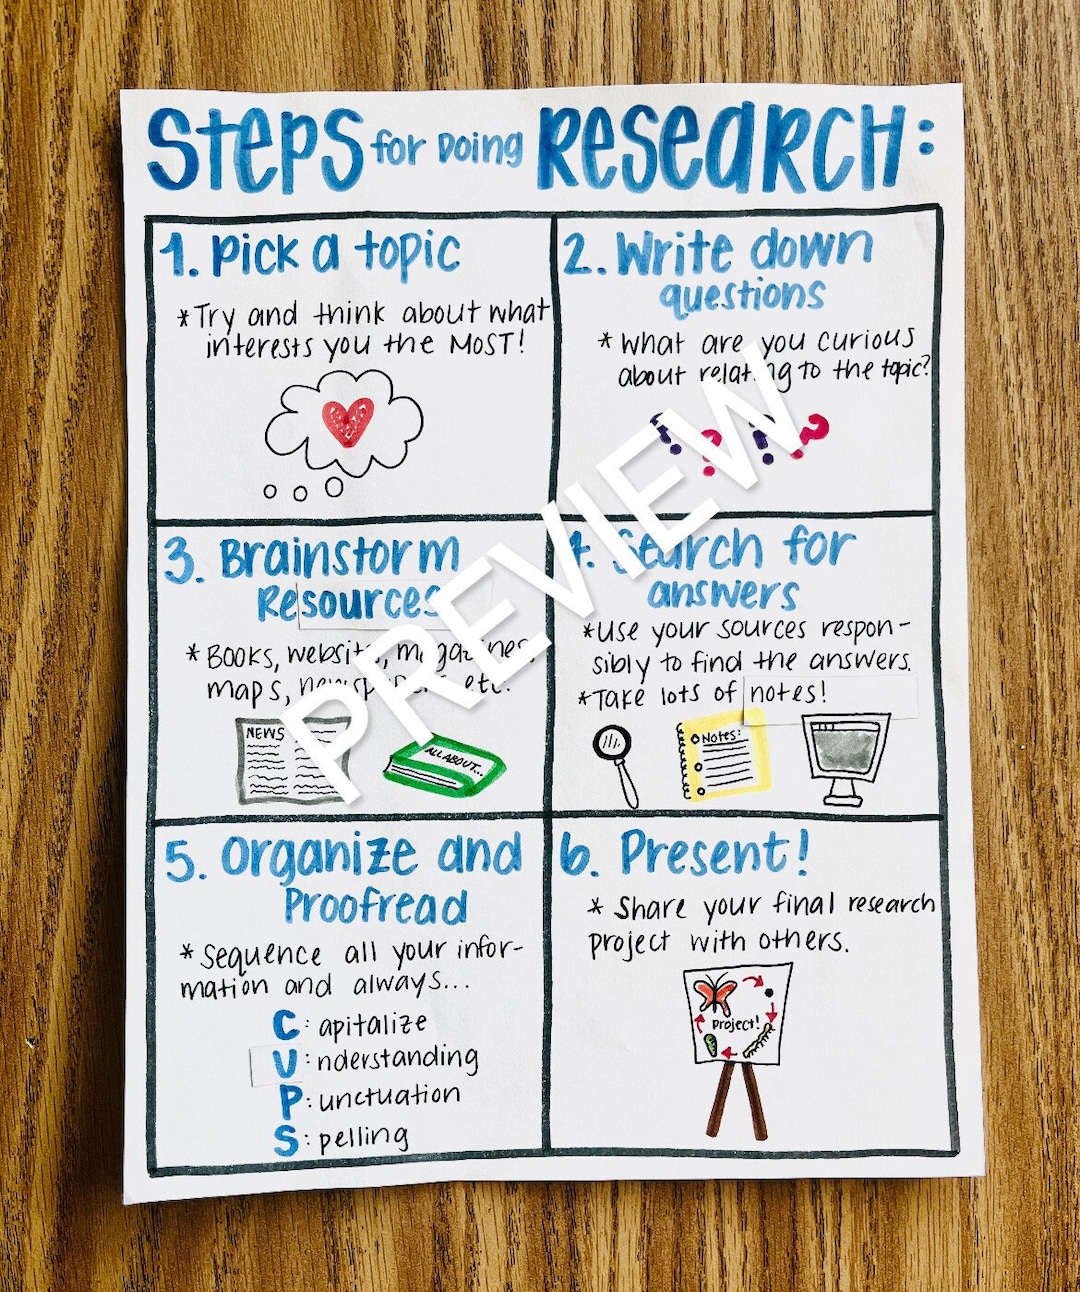 Steps for Doing Research:
1. Pick a topic
*Try and think about what
interests you the MOST!
2. Write down
questions
*What are you curious
about relating to the topic?
3. Brainstorm
Resources
*Books, websites, magazines,
maps, newspapers, etc.
NEWS
ALL ABOUT...
4. Search for
answers
*Use your sources respon-
sibly to find the answers.
*Take lots of notes!
Notes:
5. Organize and
Proofread
*Sequence all your infor-
mation and always...
C: apitalize
U: nderstanding
P: unctuation
S: pelling
6. Present!
* Share your final research
project with others.
Project!
PREVIEW